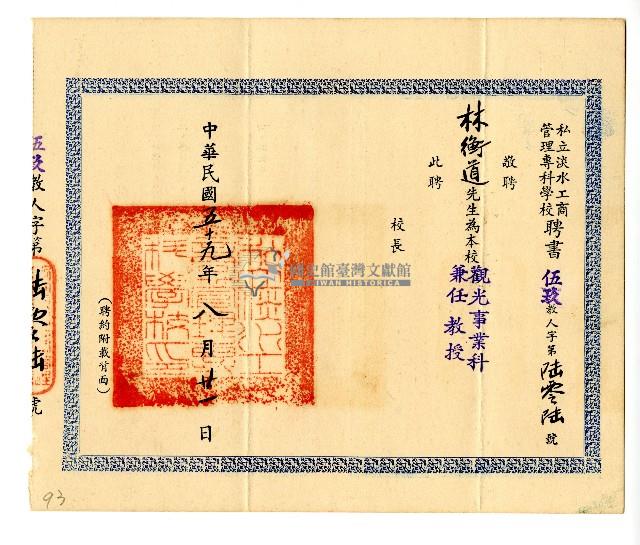 私立淡水工商
管理專科學校
聘書
伍玖教人字第陸零陸號
敦聘
林衡道先生為本校觀光事業科
兼任教授
此聘
校長
中華民國五十九年八月廿一日
(聘約附載背面)
伍玖教人字第陸零陸號
國史館臺灣文獻館
TAIWAN HISTORICA
93